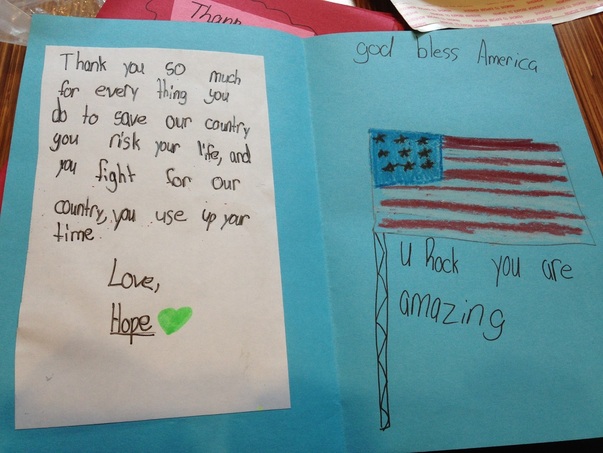 Thank you so much
for every thing you
do to save our country
you risk your life, and
you fight for our
country, you use up your
time.
Love,
Hope
god bless America
U Rock you are
amazing